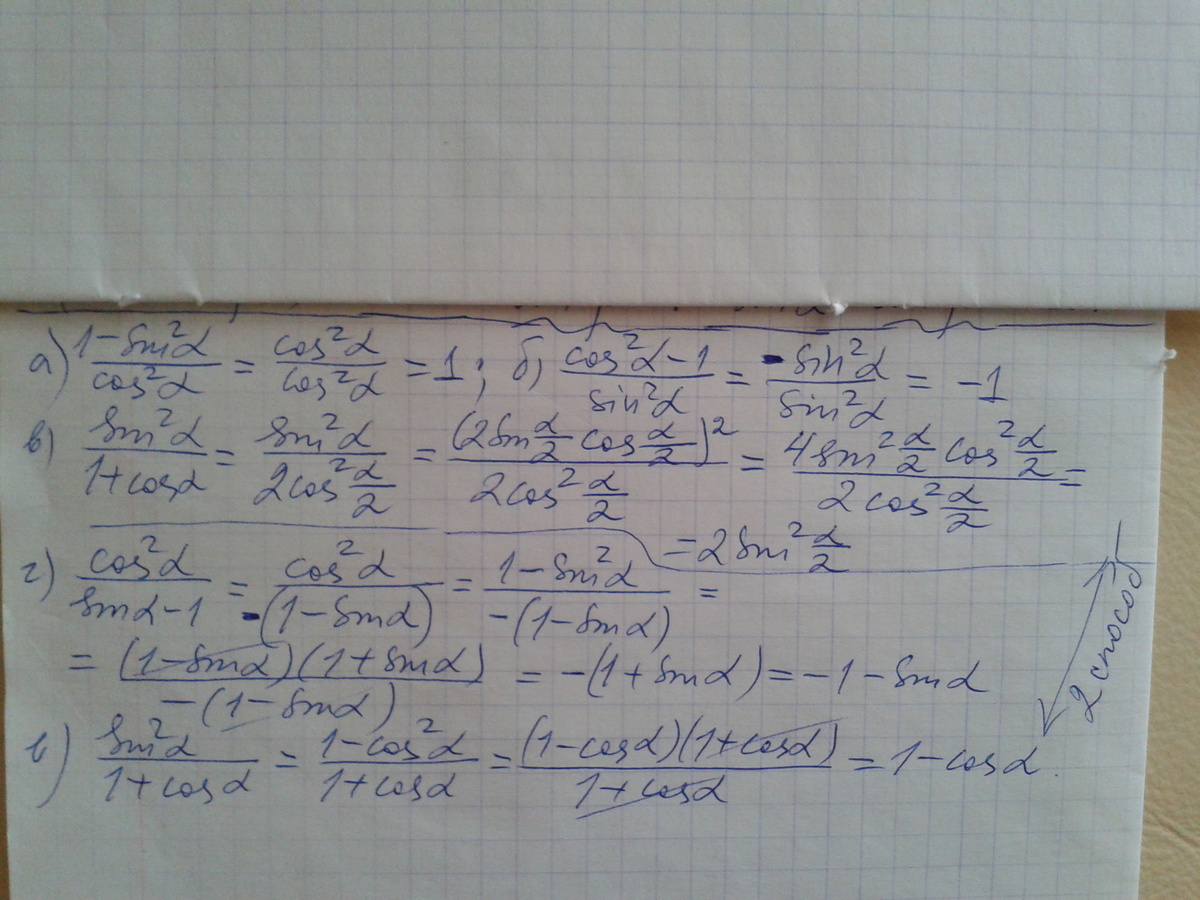 а) (1-sin²α)/(cos²α) = (cos²α)/(cos²α) = 1; б) (cos²α-1)/(sin²α) = (-sin²α)/(sin²α) = -1
в) (sin²α)/(1+cosα) = (sin²α)/(2cos²(α/2)) = ((2sin(α/2)cos(α/2))²)/(2cos²(α/2)) = (4sin²(α/2)cos²(α/2))/(2cos²(α/2)) =
= 2sin²(α/2)
г) (cos²α)/(sinα-1) = (cos²α)/(-(1-sinα)) = (1-sin²α)/(-(1-sinα)) =
= ((1-sinα)(1+sinα))/(-(1-sinα)) = -(1+sinα) = -1-sinα
2 способ
в) (sin²α)/(1+cosα) = (1-cos²α)/(1+cosα) = ((1-cosα)(1+cosα))/(1+cosα) = 1-cosα.